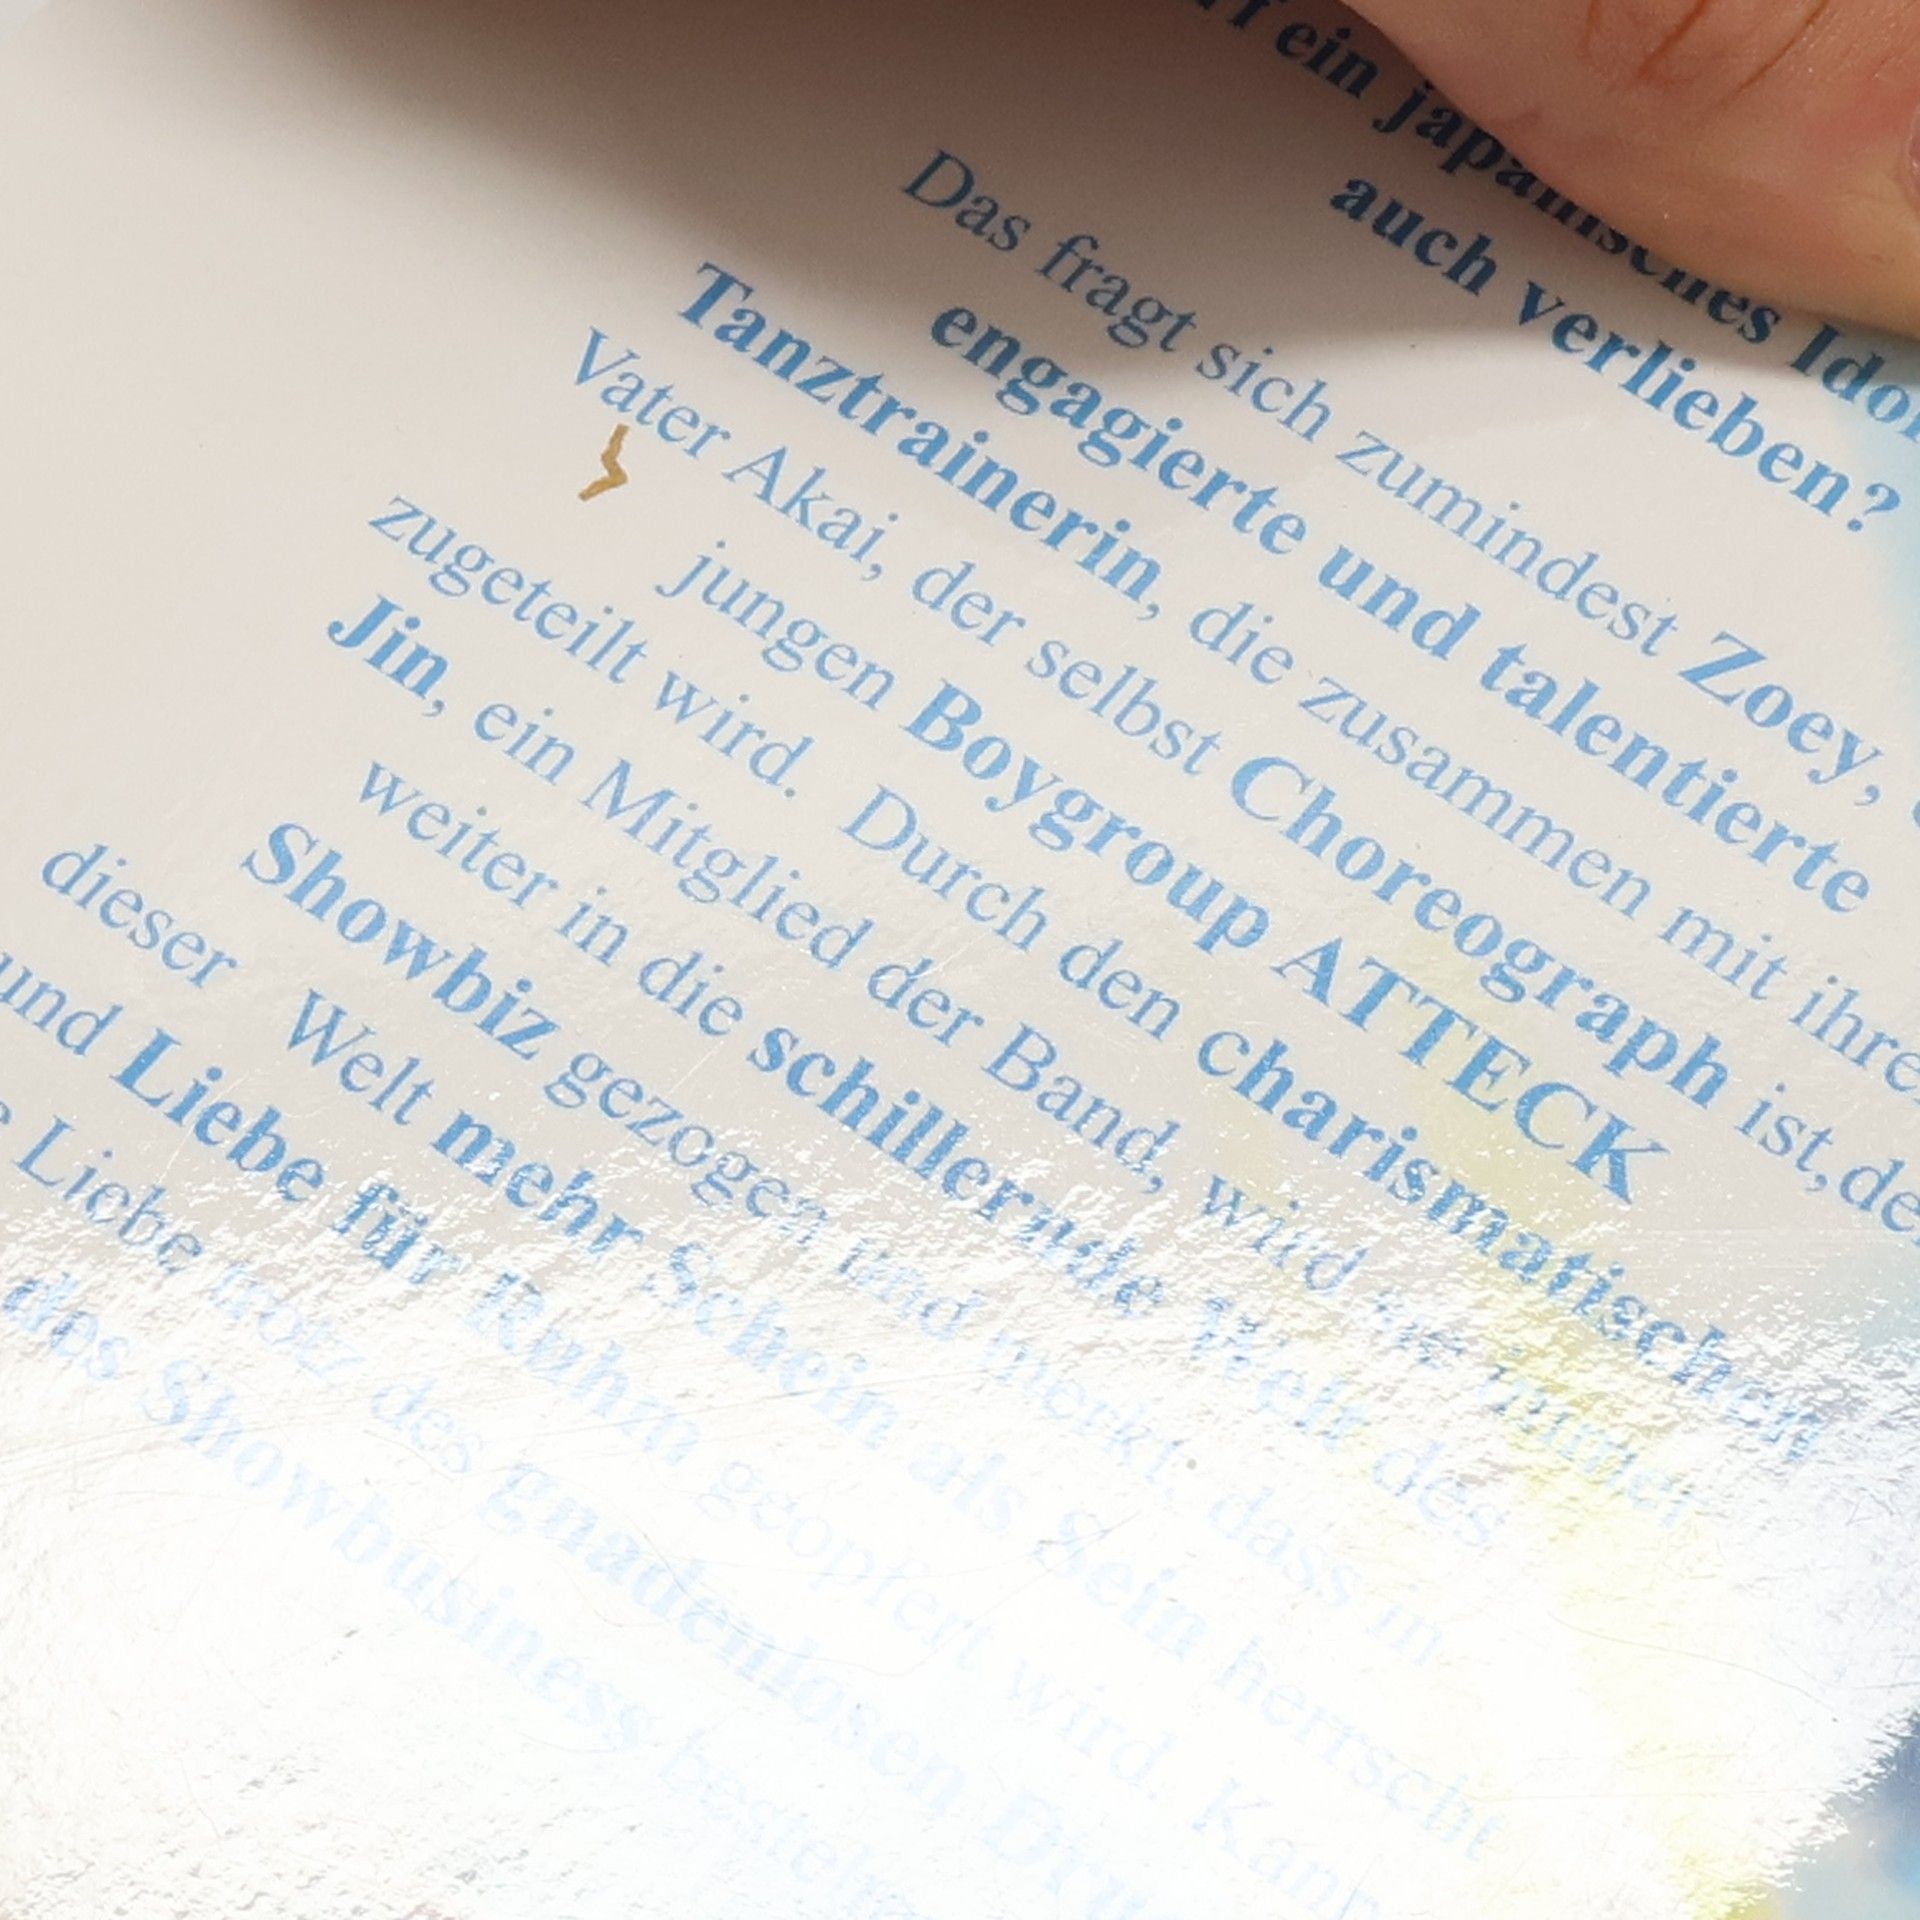 ein japanisches Idol
auch verlieben?
Das fragt sich zumindest Zoey,
engagierte und talentierte
Tanztrainerin, die zusammen mit
Vater Akai, der selbst Choreograph ist,
jungen Boygroup ATTECK
zugeteilt wird. Durch den charismatischen
Jin, ein Mitglied der Band, wird sie immer
weiter in die schillernde Welt des
Showbiz gezogen und merkt, dass in
dieser Welt mehr Schein als Sein herrscht
und Liebe für Ruhm geopfert wird. Kann
Liebe trotz des gnadenlosen
des Showbusiness